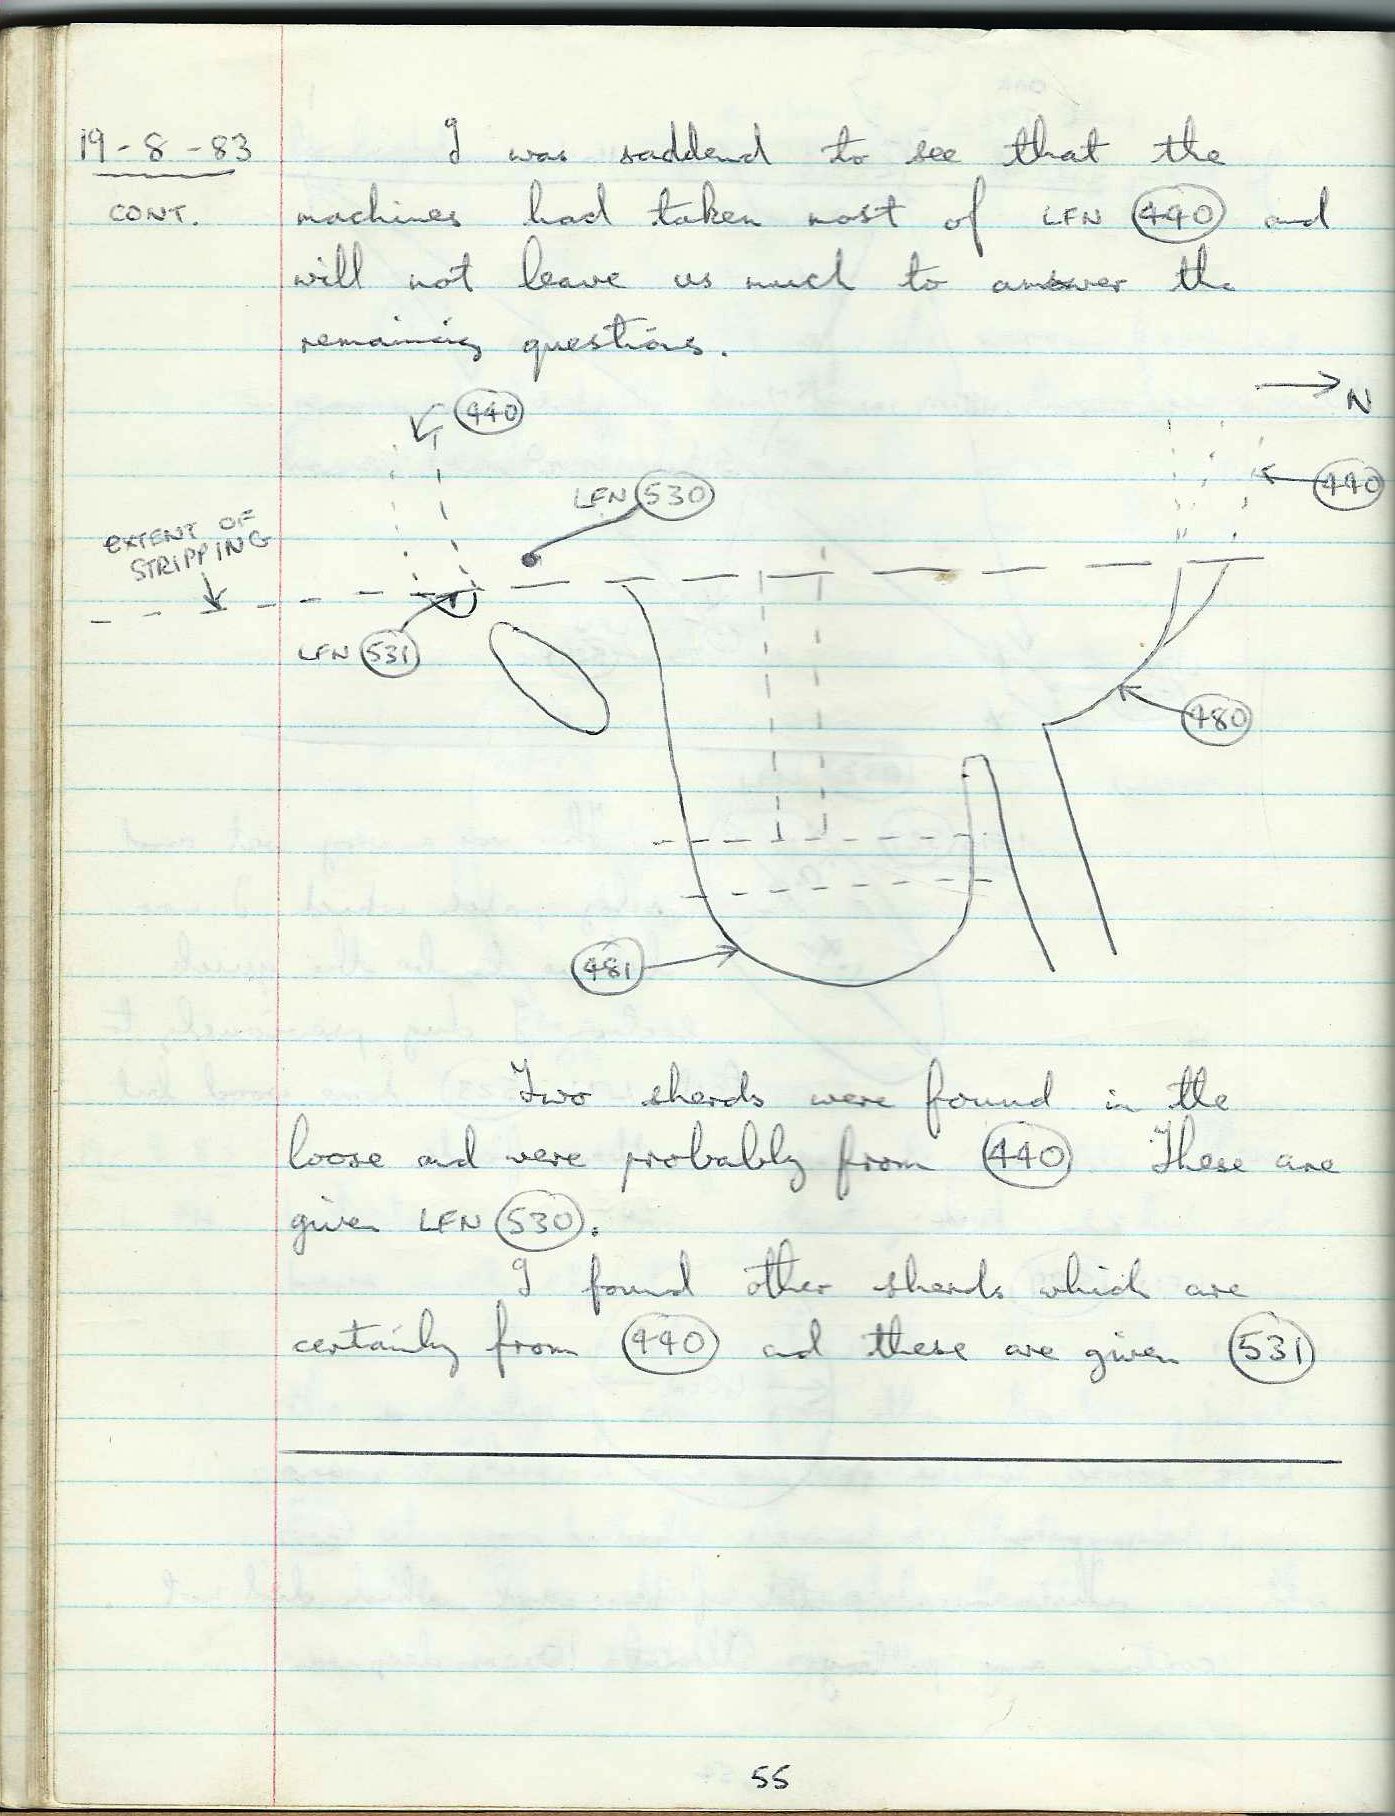 19-8-83
CONT.
I was saddend to see that the
machines had taken most of LFN 440 and
will not leave us much to answer the
remaining questions.
N
440
LFN 530
440
EXTENT OF
STRIPPING
LFN 531
480
481
Two sherds were found in the
loose and were probably from 440 These are
given LFN 530.
I found other sherds which are
certainly from 440 and these are given 531
55